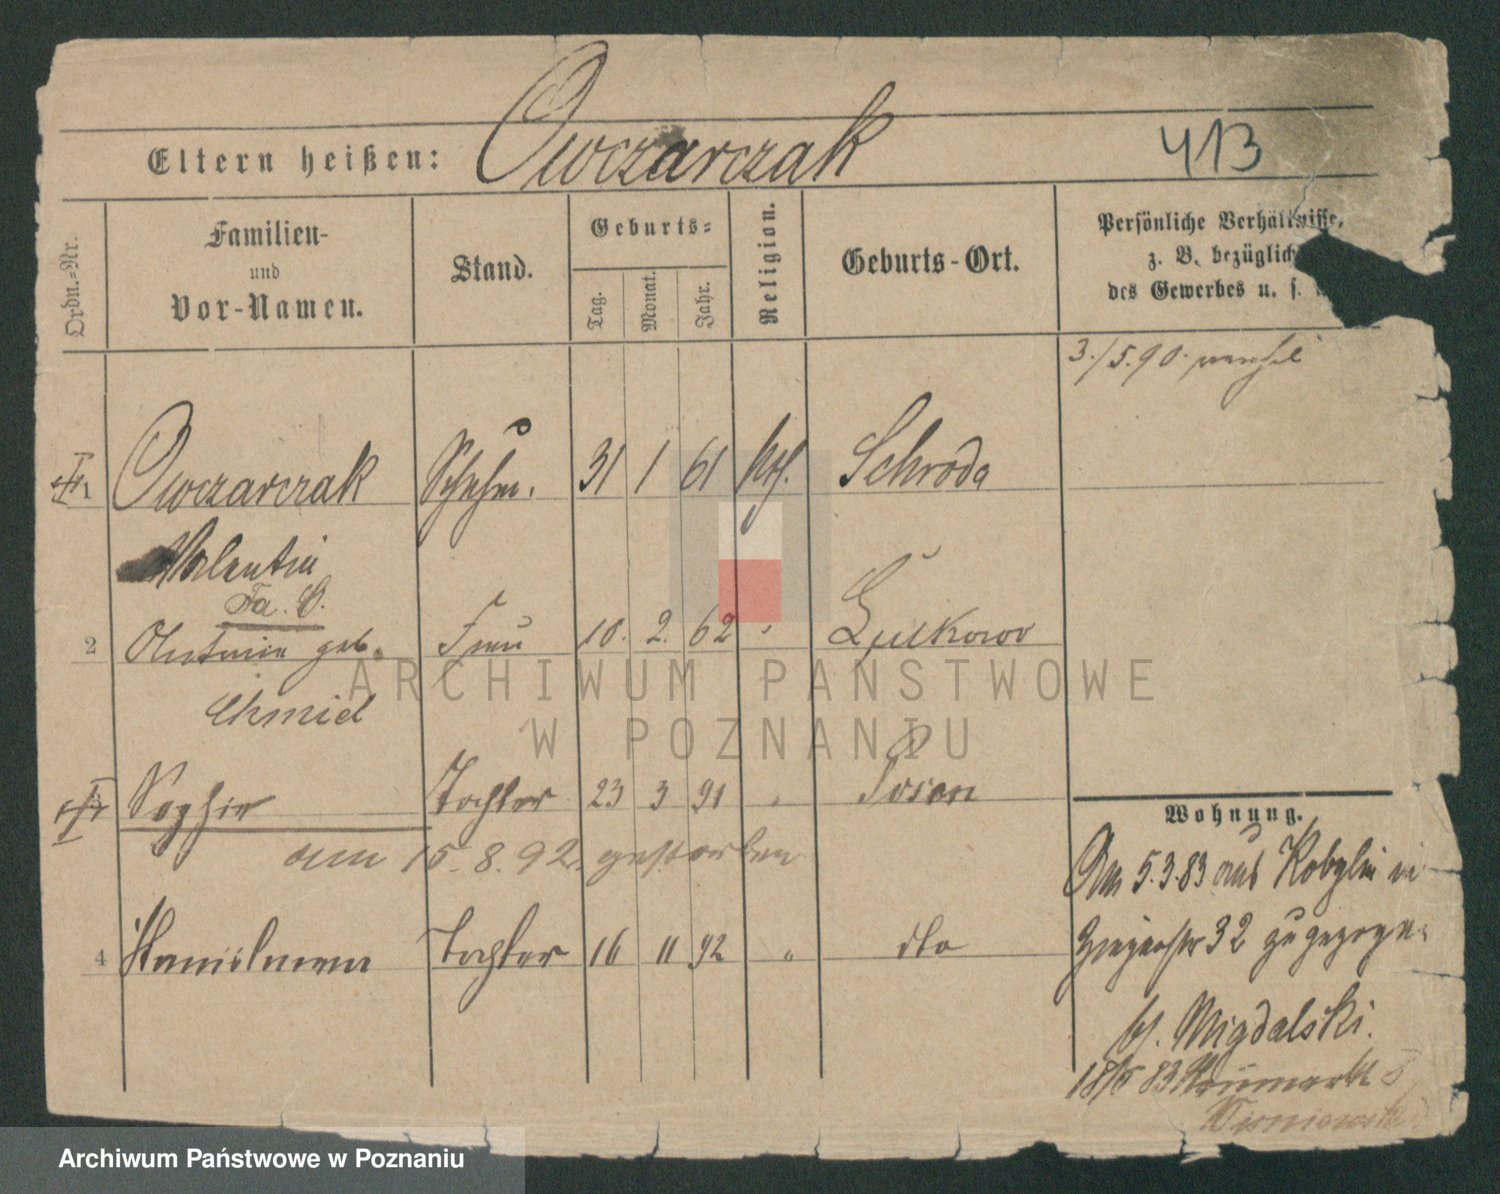 Eltern heißen: Owczarczak
413
Ordn.-Nr.
Familien-
und
Vor-Namen.
Stand.
Geburts-
Tag.
Monat.
Jahr.
Religion.
Geburts-Ort.
Persönliche Verhältnisse,
z. B. bezüglich
des Gewerbes u. s.
3./5.90.
1 Owczarczak 31 1 61 kth. Schroda
Valentin
2 geb. Frau 10. 2. 62 "
Chmiel
3 Sophie Tochter 23 3 91 " Posen
am 15.8.92. gestorben
4 Tochter 16 11 92 " dto
Wohnung.
Am 5.3.83 aus Kobylin in
32 zugezogen
bf. Migdalski.
18/5 83 Neumarkt 8
ARCHIWUM PAŃSTWOWE
W POZNANIU
Archiwum Państwowe w Poznaniu